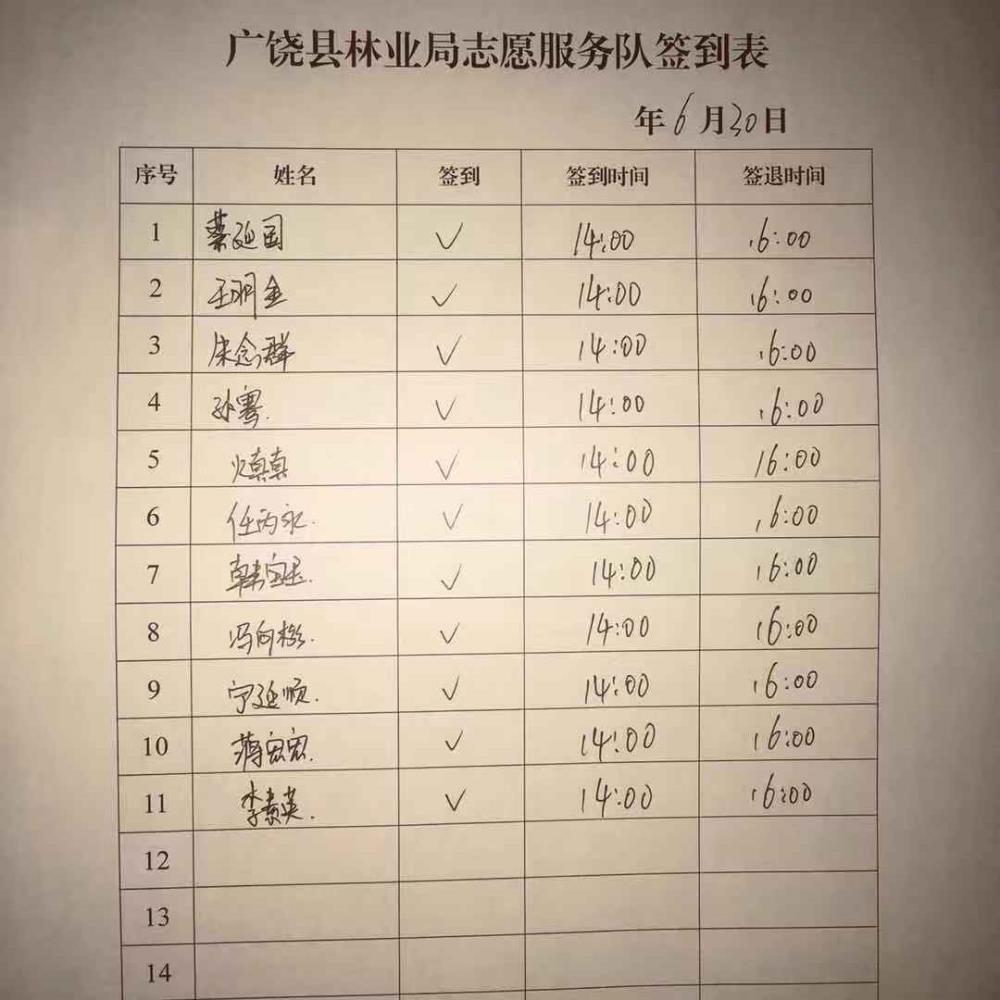 广饶县林业局志愿服务队签到表
年6月30日
序号 姓名 签到 签到时间 签退时间
1 蔡延国 ✓ 14:00 16:00
2 王明金 ✓ 14:00 16:00
3 朱念群 ✓ 14:00 16:00
4 孙骞 ✓ 14:00 16:00
5 真真 ✓ 14:00 16:00
6 任丙永 ✓ 14:00 16:00
7 韩宝 ✓ 14:00 16:00
8 冯向 ✓ 14:00 16:00
9 宁延顺 ✓ 14:00 16:00
10 蒋宏宏 ✓ 14:00 16:00
11 李素英 ✓ 14:00 16:00
12
13
14